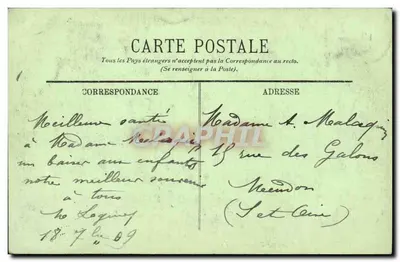 CARTE POSTALE
Tous les Pays étrangers n'acceptent pas la Correspondance au recto.
(Se renseigner à la Poste).
CORRESPONDANCE
ADRESSE
Meilleure santé
à Madame
un baiser aux enfants
notre meilleur souvenir
à tous
18-7 09
Madame A. Malaquin
15 rue des Galons
Meudon
(S et Oise)